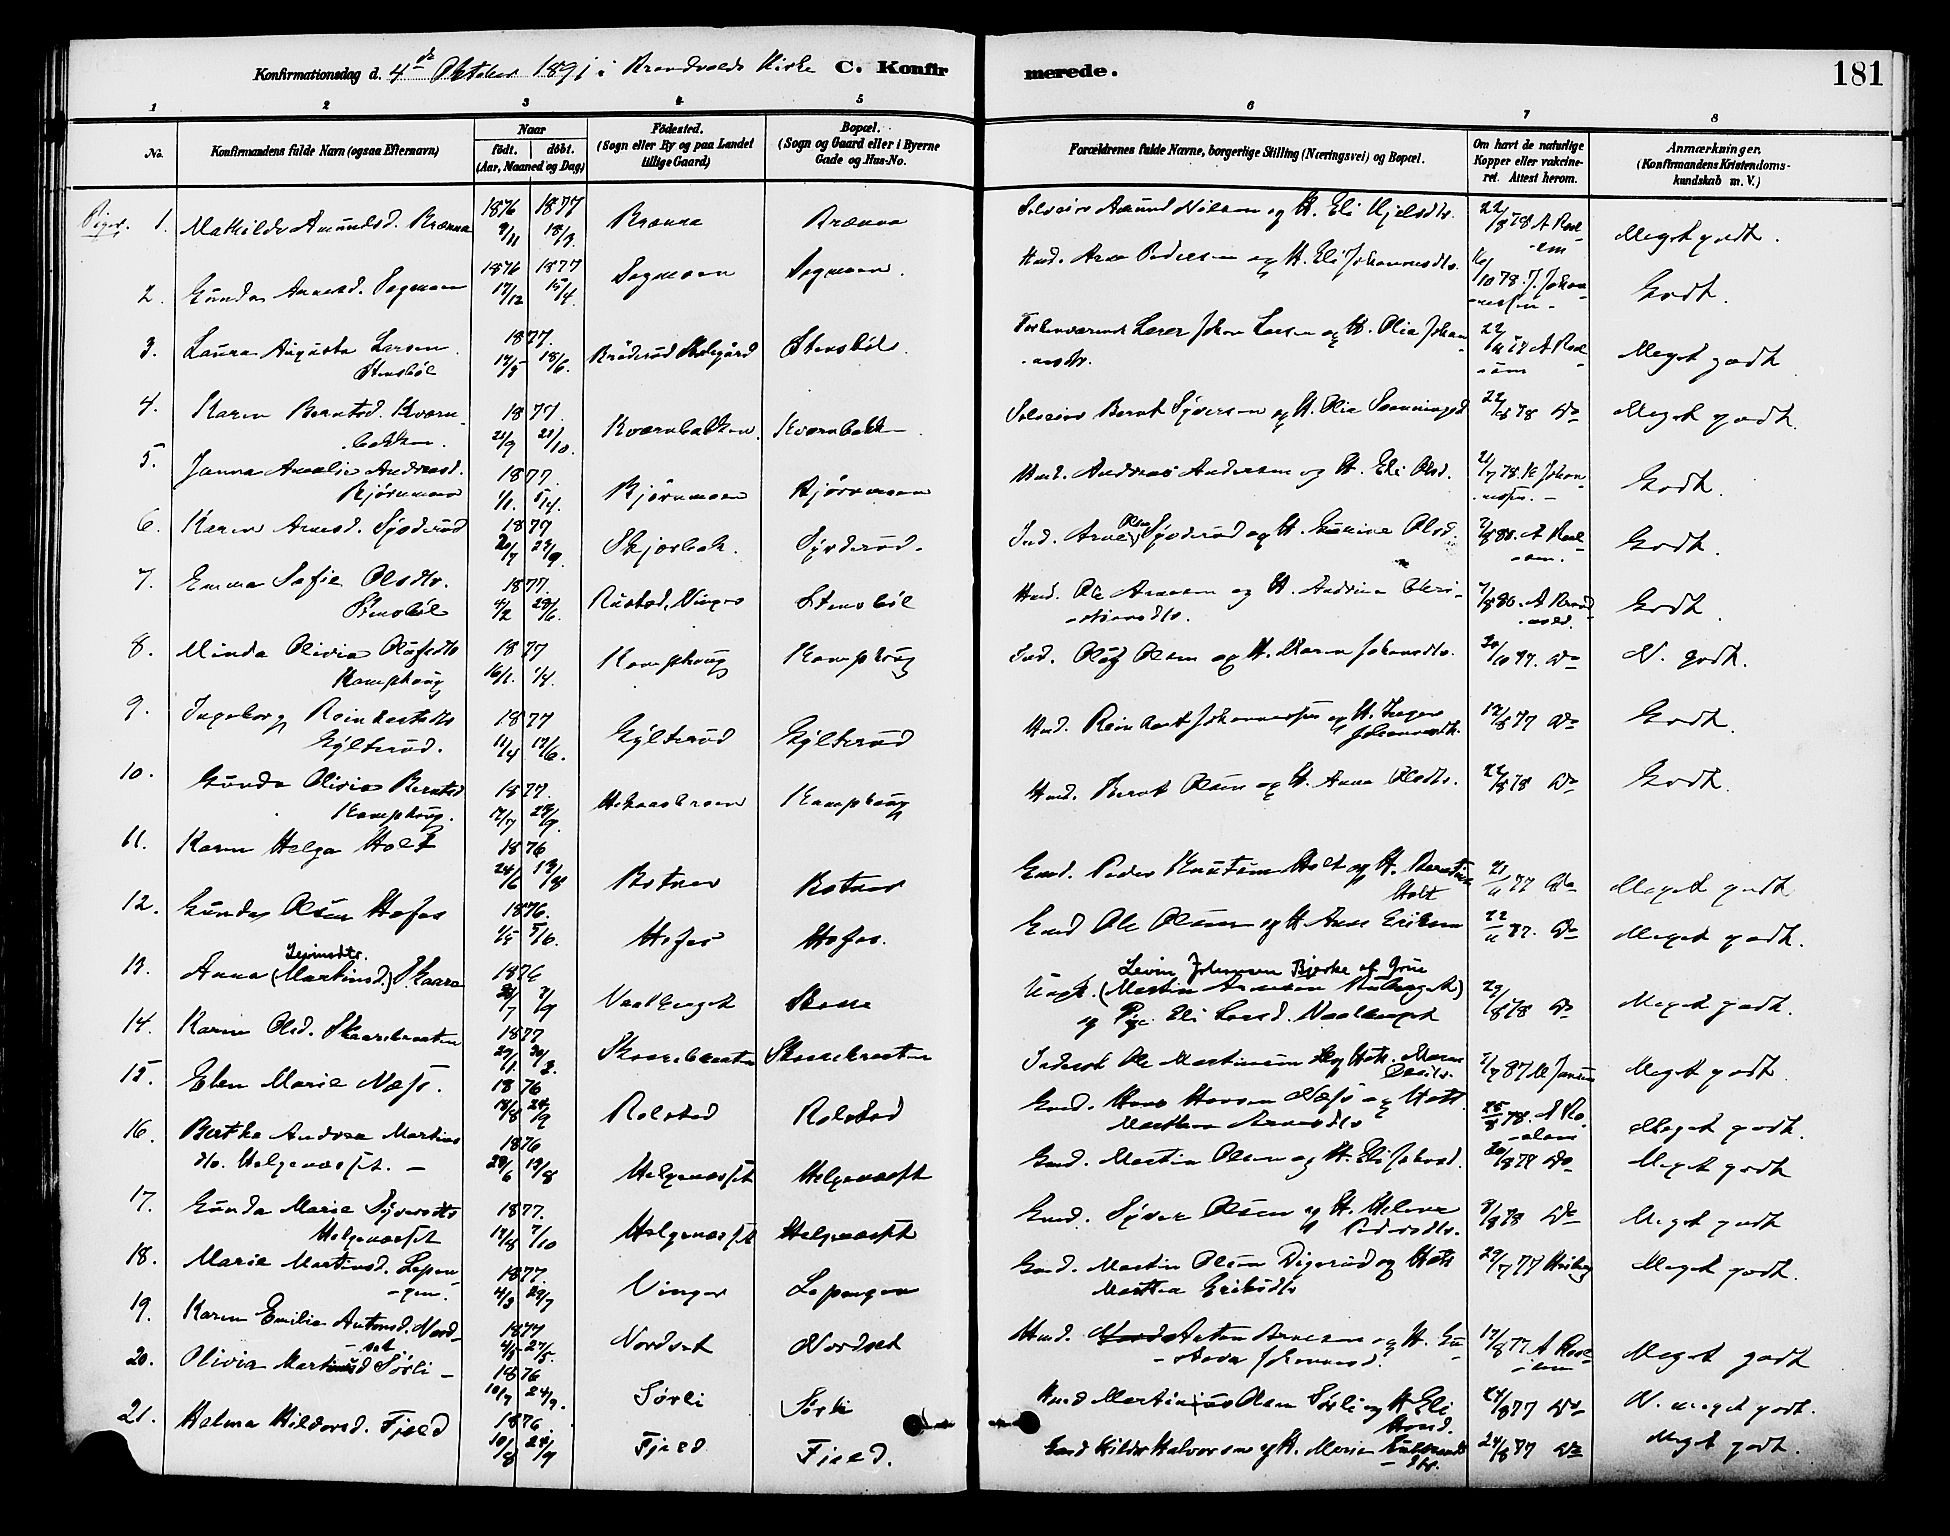 Konfirmationsdag d. 4de Oktober 1891 i Brandvolds Kirke C. Konfirmerede. 181
1 2 3 4 5 6 7 8
No. Konfirmandens fulde Navn (ogsaa Efternavn) Naar födt. döbt. (Aar, Maaned og Dag) Födested. (Sogn eller By og paa Landet tillige Gaard) Bopæl. (Sogn og Gaard eller i Byerne Gade og Hus-No. Forældrenes fulde Navne, borgerlige Stilling (Næringsvei) og Bopæl. Om havt de naturlige Kopper eller vakcineret. Attest herom. Anmærkninger. (Konfirmandens Kristendomskundskab m. V.)
Piger. 1. Mathilde Amundsd. Brænna 1876 9/11 1877 18/3 Brænna Brænna Selveier Amund Nilsen og H. Eli Kjelsdtr. 22/8 78 Meget godt.
2. Gunda Arnesd. Sogmoen 1876 17/12 1877 15/4 Sogmoen Sogmoen. Husm. Arne Pedersen og H. Eli Johannesdtr. 10/10 78. J. Johannessen Godt.
3. Laura Augusta Larsen Stensböl 1877. 14/5 18/6. Stensböl. Forhenværende Lærer Johan Larsen og H. Olia Johannesdtr. Meget godt
4. Karen Berntsd. Kværnbakken. 1877. 21/9 21/10. Kværnbakken. Kværnbakken Selveier Bernt Syversen og H. Olia 22/8 78 Do Meget godt.
5. Janna Amalie Andreasd. Bjørnmoen 1877. 1/1. 5/4. Bjørnmoen Bjørnmoen Husm. Andreas Andersen og H. Eli Olsd. 21/7 78 K Johannessen. Godt.
6. Karen Arnesd. Syvderud 1877 Skjærbek. Syvderud. Ind. Arne Olsen Syvderud og H. Gunine Olsd. Godt.
7. Emma Sofie Olsdtr. Stensböl 1877. 4/2 Rustad, Vinger Stensböl Husm. Ole Arnesen og H. Andrine Christiansdtr. Godt.
8. Minda Olivia Olufsdtr Kamphaug 1877 16/1. 1/4. Kamphaug Kamphaug Ind. Oluf Olsen og H. Maren Johansdtr. Do N. godt.
9. Ingeborg Reinhartsdtr Gylterud. 1877 11/4 17/6. Gylterud Gylterud Husm. Reinhart Johannessen og H. Inger Johannesdtr. 12/8 77 Do Godt.
10. Gunda Olivia Berntsd Kamphaug. 1877. 17/7 Kamphaug Husm. Bernt Olsen og H. Anna Olsdtr. 22/8 78 Do Godt.
11. Karen Helga Holt 1876 24/6 13/8 Botner Botner Gmd. Peder Knutsen Holt og H. Berntine Holt 21/11 77 Do Meget godt
12. Gunda Olsen Hofos 1876. 1/5 5/6. Hofos Hofos. Gmd Ole Olsen og H. Anne Eriksen 22/11 87. Do Meget godt.
13. Anna (Martinsd.) Levinsdtr. Skaara 1876 Vaalberget Skaara Ungk. (Martin Arnesen) Levin Johansen Bjerke af Grue og Pige Eli Larsd. Vaalberget 29/8 78 Do Meget godt.
14. Karen Olsd. Skaarebraaten 1877 Skaarebraaten Skaarebraaten Inderst Ole Martinsen og H. Maren Meget godt.
15. Elen Marie Næss. 1876 18/8 24/9 Rolstad Rolstad Gmd. Hans Hansen Næss og H. Marthea Arnesdtr 25/8 78. Meget godt.
16. Berthe Andrea Martinsdtr. Helgenæsset. 1876 29/6 13/8 Helgenæsset Helgenæsset Gmd. Martin Olsen og H. Eli Johnsd. 20/8 78 Do Meget godt
17. Gunda Marie Syversdtr Helgenæsset 1877. 17/8 7/10 Helgenæsset Helgenæsset Gmd. Syver Olsen og H. Helene Pedersdtr. 8/8 78 Do Meget godt
18. Marie Martinsd. Lepengen. 1877. 4/3 29/7 Vinger Lepengen Gmd. Martin Olsen Digerud og H. Marthea Eriksdtr 29/7 77 Meget godt.
19. Karen Emilie Antonsd. Nordset 1877 4/3 27/5. Nordset Nordset Husm. Anton Arnesen og H. Gustava Johannesd. 17/8 77. Meget godt
20. Olivia Martinusd Sørli 1876 10/7 24/9. Sørli Sørli Husm Martinius Olsen Sørli og H Eli 24/8 77 Do N. meget godt.
21. Halma Hildorsd. Fjeld 1876 10/8 24/9 Fjeld Fjeld. Gmd Hildor Halvorsen og H. Maria Gulbrandsdtr. 24/8 77 Do Meget godt.